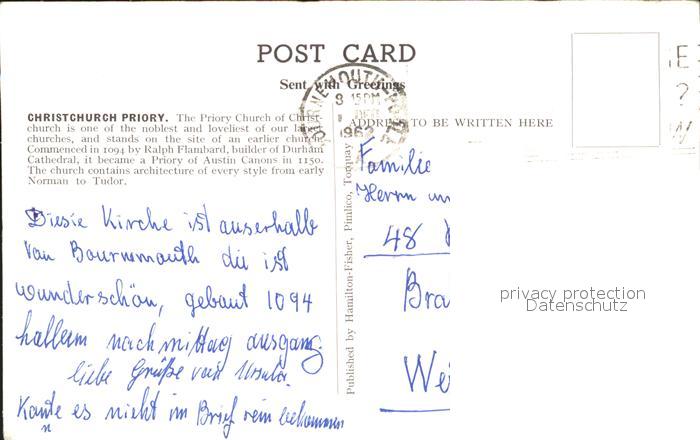 POST CARD
Sent with Greetings
BOURNEMOUTH-POOLE
8 15PM
1962
CHRISTCHURCH PRIORY. The Priory Church of Christ-
church is one of the noblest and loveliest of our large
churches, and stands on the site of an earlier church.
Commenced in 1094 by Ralph Flambard, builder of Durham
Cathedral, it became a Priory of Austin Canons in 1150.
The church contains architecture of every style from early
Norman to Tudor.
ADDRESS TO BE WRITTEN HERE
Published by Hamilton-Fisher, Pimlico, Torquay
Diesie Kirche ist auserhalb
van Bournmouth die ist
wunderschön, gebaut 1094
nachmittag ausgang
liebe Grüße von Ursula.
Kante es nicht im Brief rein bekommen
n
Familie
Herrn un
48
Bra
We
E
?
W
privacy protection
Datenschutz